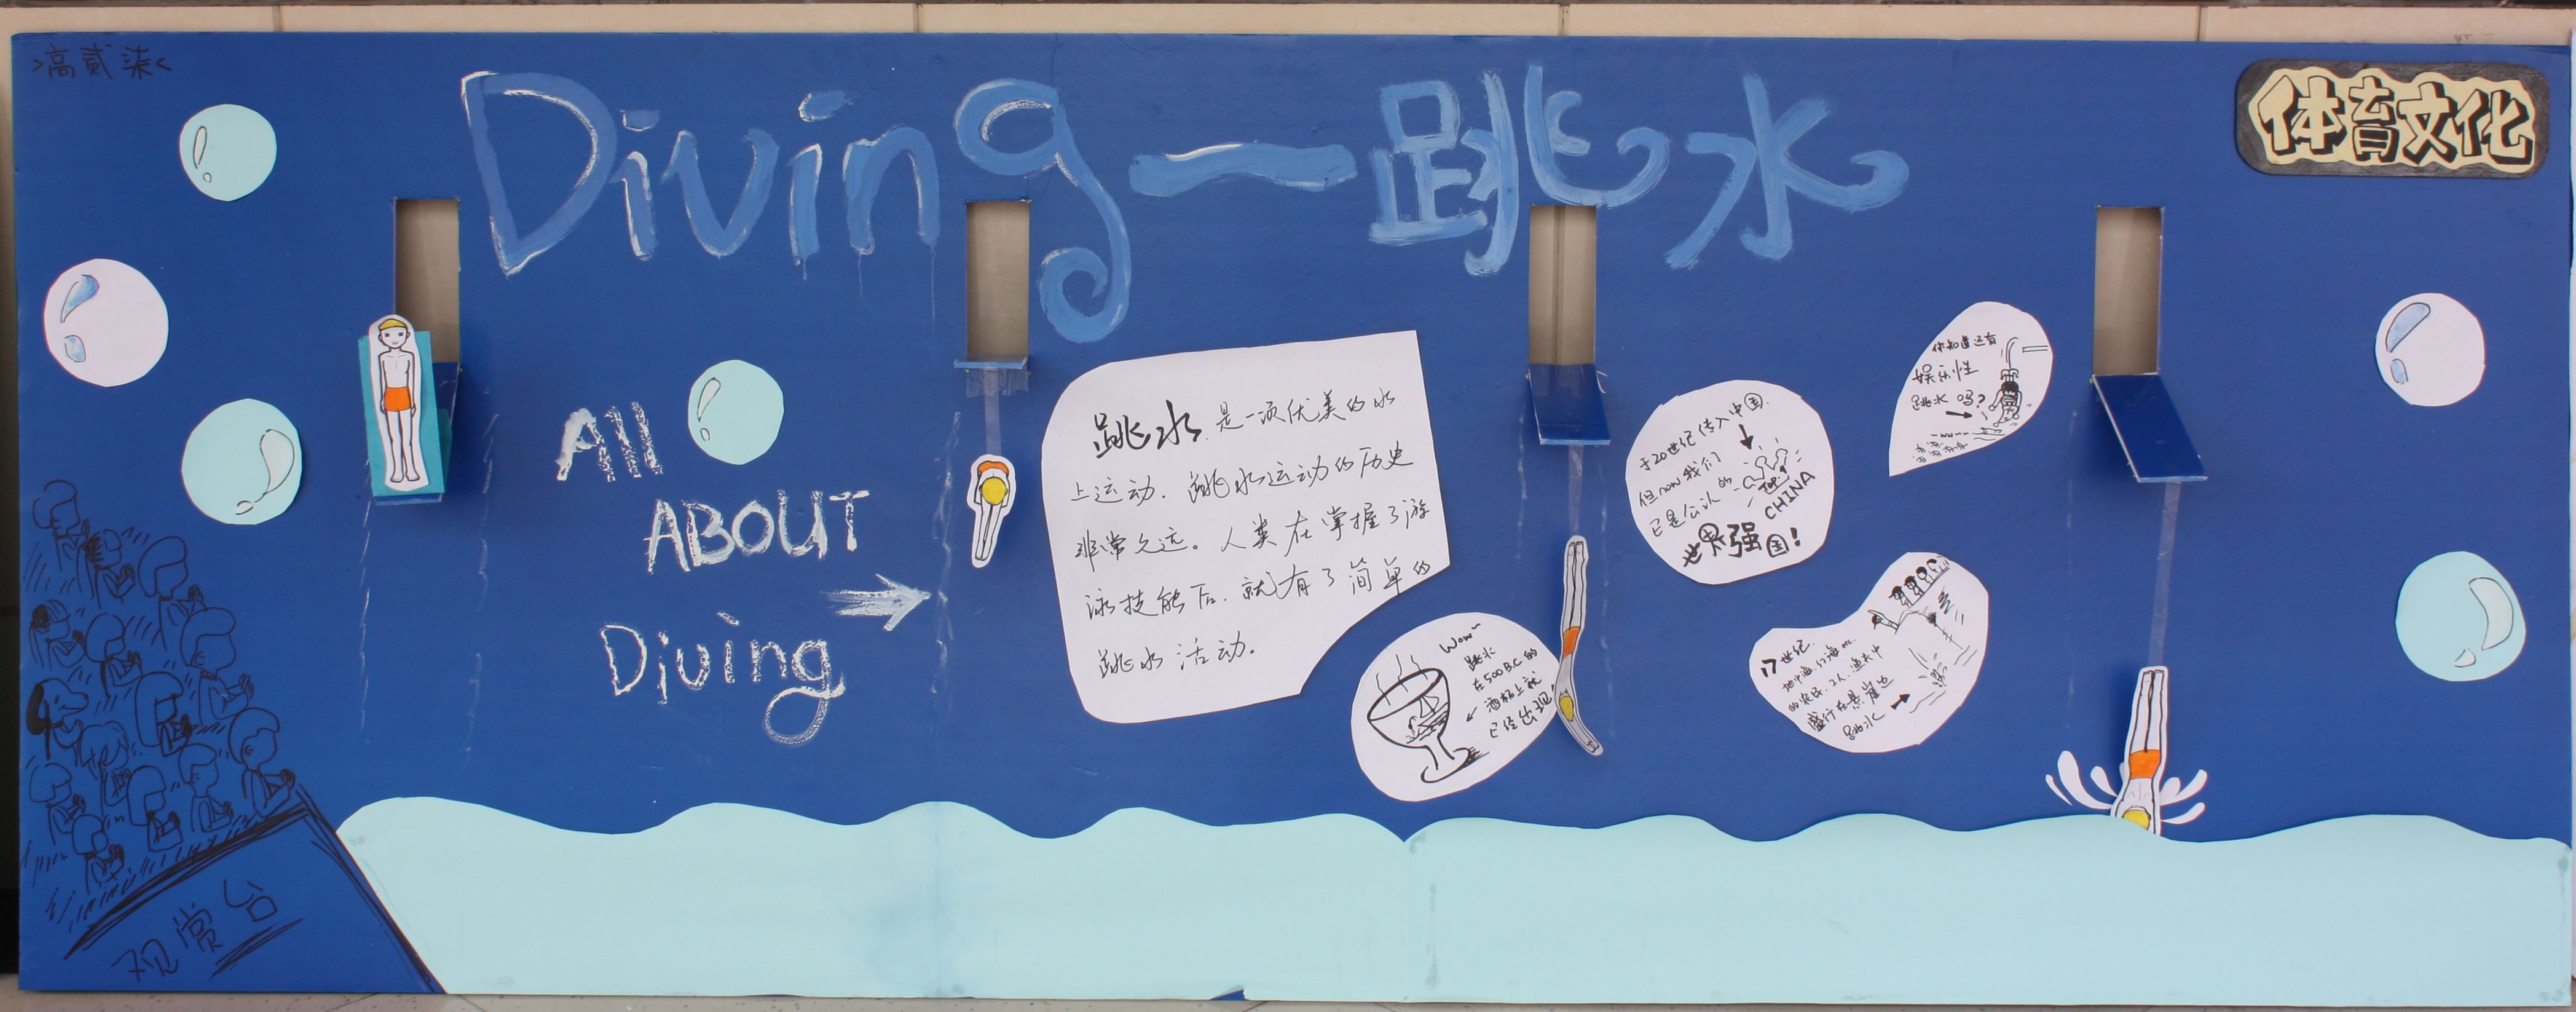 >高贰柒<
Diving—跳水
体育文化
All
ABOUT
Diving
跳水是一项优美的水
上运动.跳水运动的历史
非常久远。人类在掌握了游
泳技能后.就有了简单的
跳水活动.
Wow~
跳水
在500B.C的
酒杯上就
已经出现!
于20世纪传入中国.
但now我们
已是公认的
TOP.
CHINA
世界强国!
你知道还有
娱乐性
跳水吗?
17世纪.
地中海.
的农民.工人.渔夫中
盛行在悬崖边
跳水
观赏台